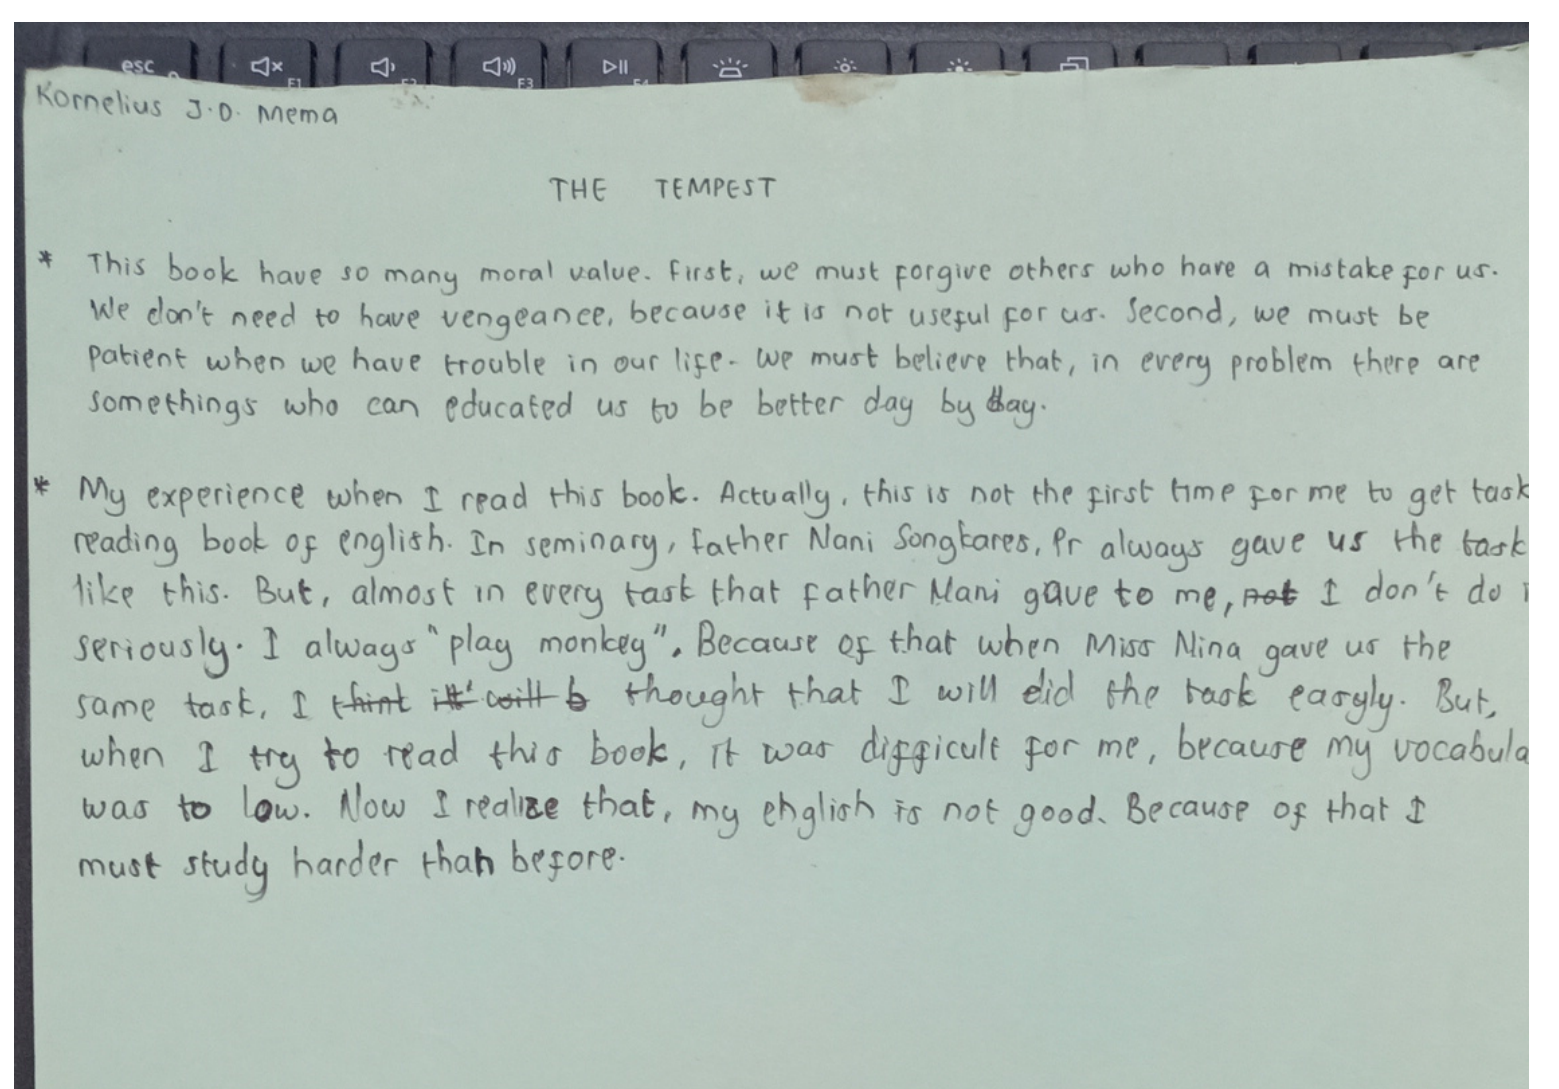 esc
F1
F2
F3
F4
Kornelius J.D. Mema
THE TEMPEST
* This book have so many moral value. First, we must forgive others who have a mistake for us.
We don't need to have vengeance, because it is not useful for us. Second, we must be
patient when we have trouble in our life. We must believe that, in every problem there are
somethings who can educated us to be better day by day.
* My experience when I read this book. Actually, this is not the first time for me to get task
reading book of english. In seminary, father Nani Songkares, Pr always gave us the task
like this. But, almost in every task that father Nani gave to me, not I don't do i
seriously. I always "play monkey". Because of that when Miss Nina gave us the
same task, I think it' will b thought that I will did the task easyly. But,
when I try to read this book, it was difficult for me, because my vocabula
was to low. Now I realize that, my english is not good. Because of that I
must study harder than before.